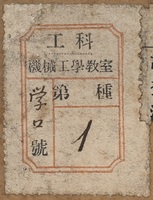 工科
機械工學教室
第 種
学口號
1